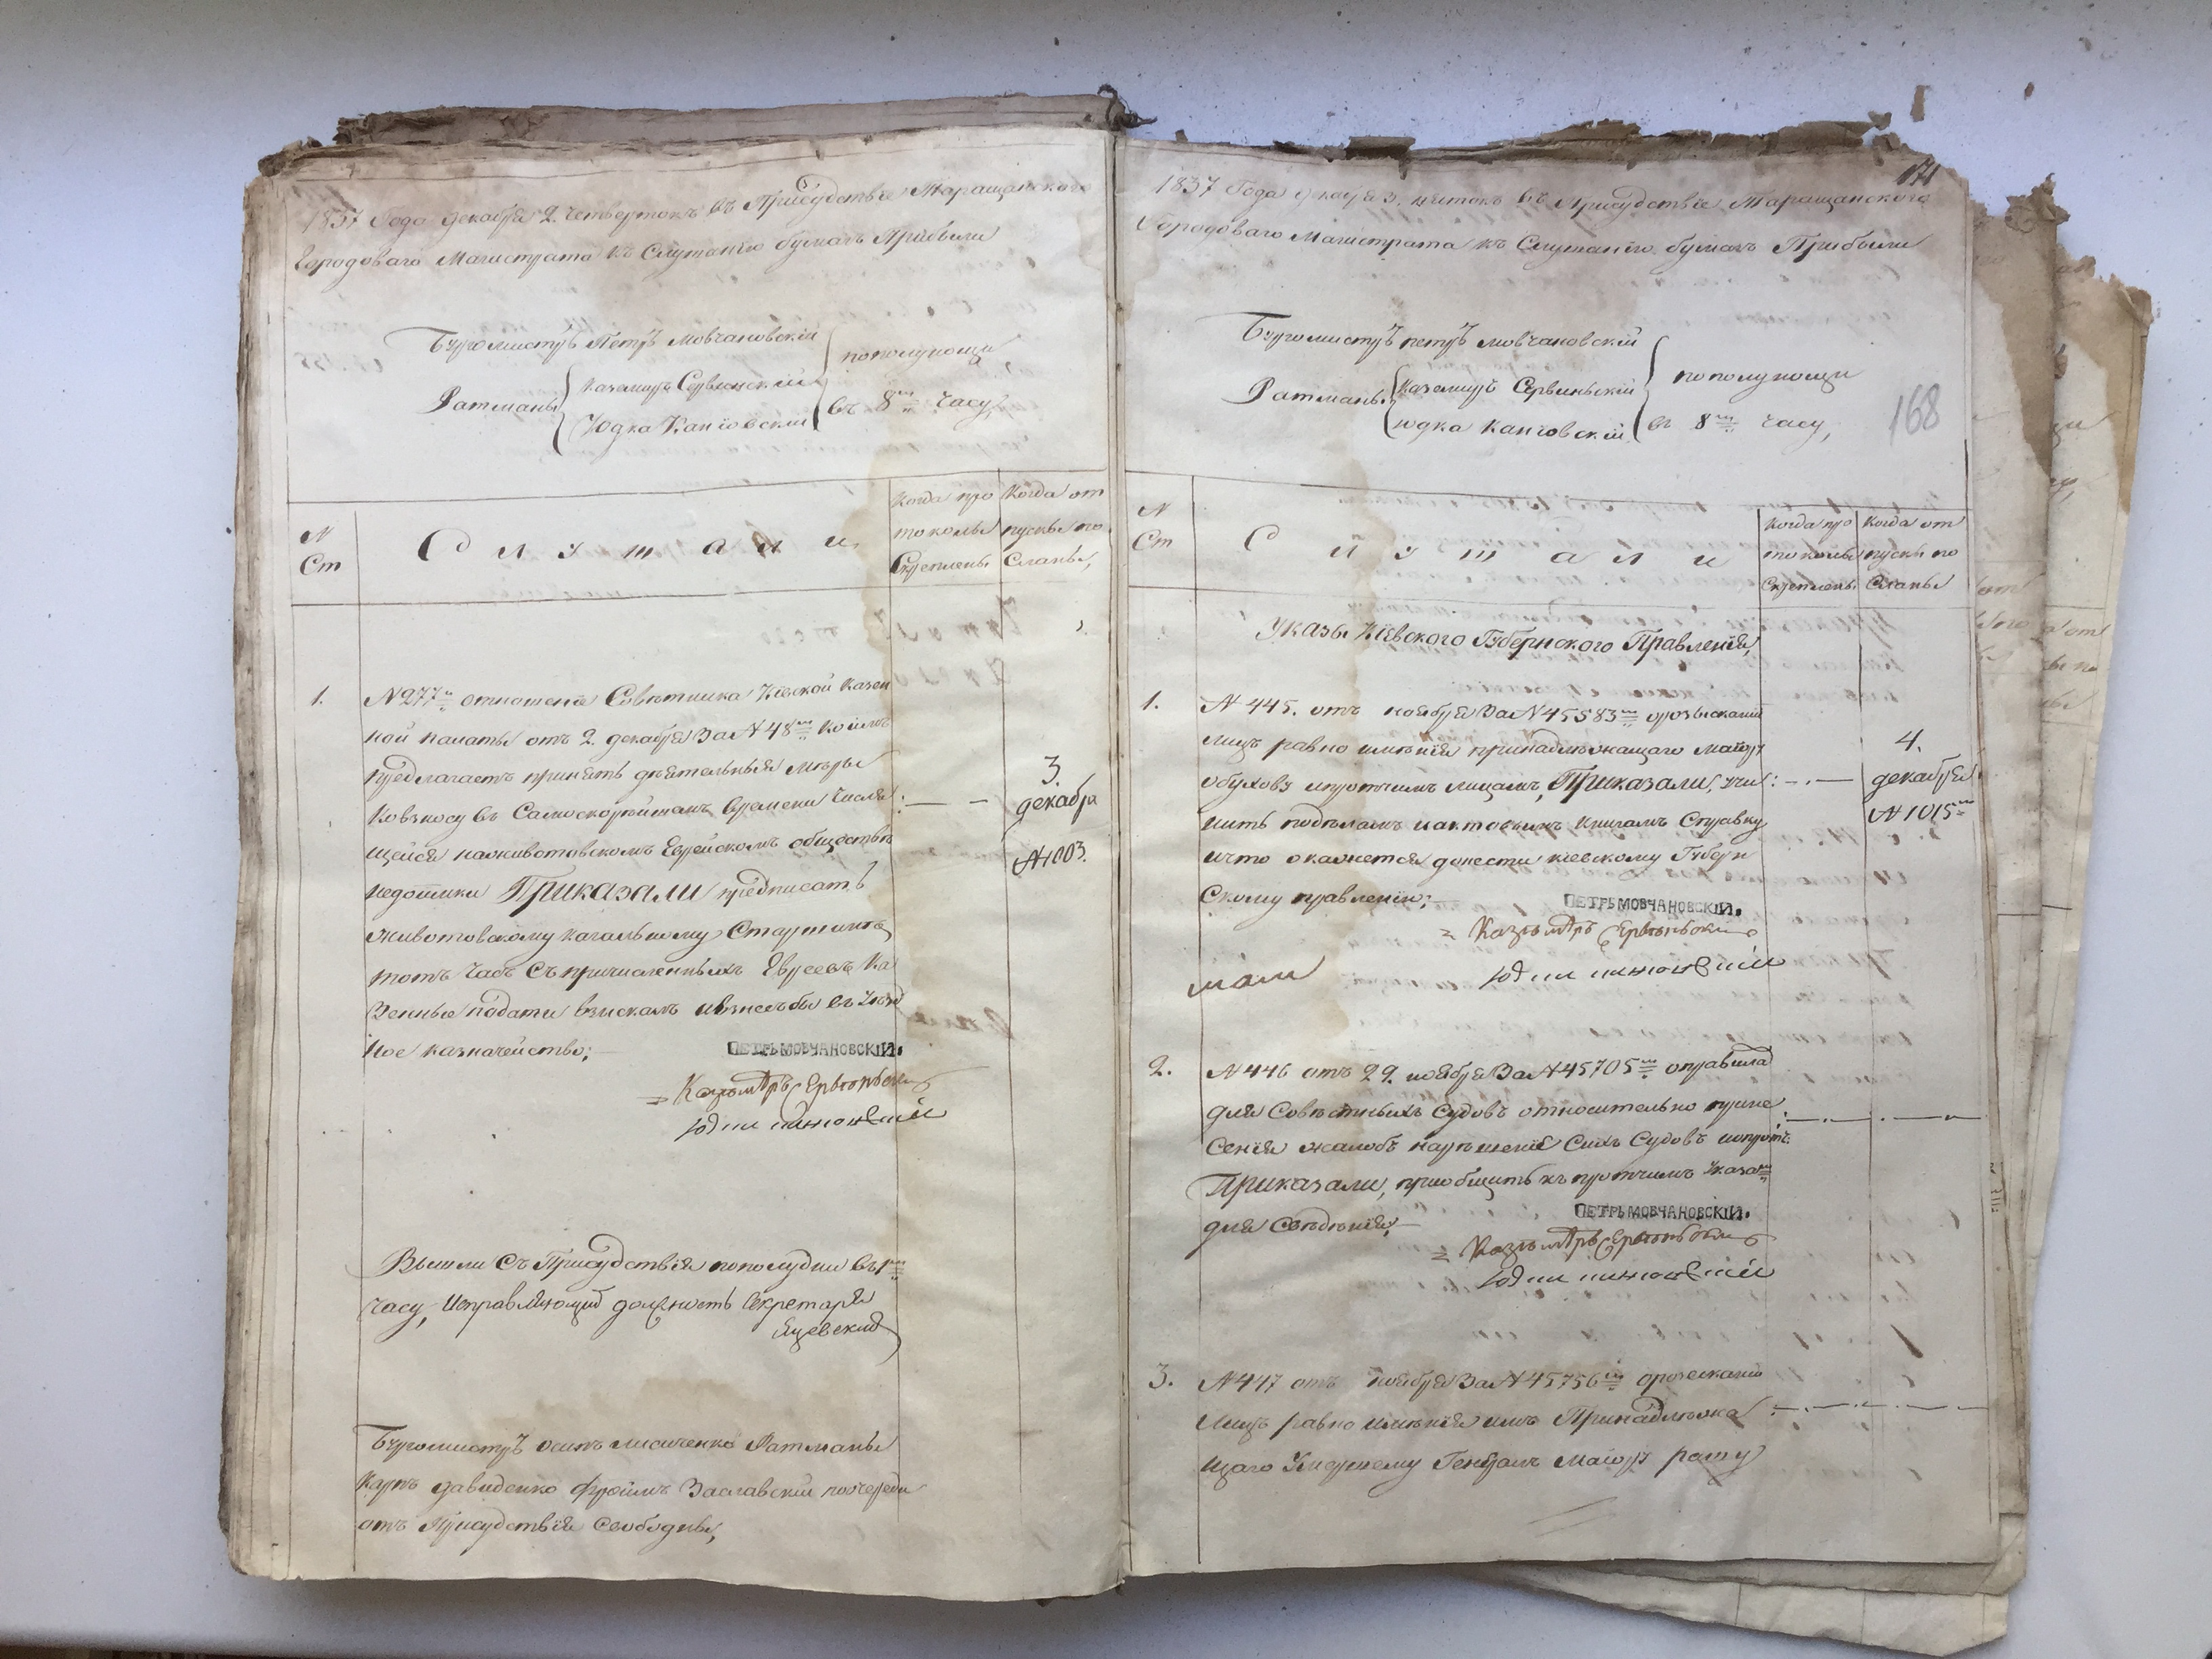 1837 Года декабря 2. четвертокъ въ Присудствіе Таращанского
Городоваго Магистрата къ Слушанію бумагъ Прибыли
Бургомистръ Петръ Мовчановскій
Ратманы
Каземиръ Сервинскій
Юдка Каніовскій
пополуночи
въ 8мъ часу,
N
Ст
Слушали
Когда про
токолы
Скреплены
Когда от
пуски по
Сланы,
1.
N 277й отношеніе Совѣтника Кіевской Казен
ной палаты отъ 2. декабря За N 48мъ коимъ
предлагаетъ принять дѣятельныя мѣры
Ковзносу въ Самоскорѣйшемъ времени Числя
щейся наживотовскомъ Еврейскомъ обществѣ
недоимки Приказали предписать
животовскому кагальному Старшинѣ
тотъ часъ съ причисленныхъ Евреевъ Ка
Зенные подати взыскалъ ивзнесъ бы въ Уѣзд
ное казначейство;
3.
декабря
N 1003.
ПЕТРЪ МОВЧАНОВСКІЙ.
Вышли съ Присудствія пополудни въ 1мъ
часу, Исправляющій должность Секретаря
Яцевскій
Бургомистръ осипъ лисиченко Ратманы
Карпъ давиденко Фроимъ Заславскій поочереди
отъ Присудствія Свободны,
171
1837 Года декабря 3. пятокъ въ Присудствіе Таращанского
Городоваго Магистрата къ Слушанію бумагъ Прибыли
Бургомистръ петръ мовчановскій
Ратманы
Каземиръ Сервиньскій
юдка Каніовскій
пополуночи
въ 8мъ часу,
168
N
Ст
Слушали
Когда про
токолы
Скреплены
Когда от
пуски по
Сланы
Указы Кіевского Губернского Правленія,
1.
N 445. отъ ноября За N 45583мъ орозысканіи
лицъ равно имѣнія принадлежащаго маіору
обухову ипротчимъ лицамъ, Приказали, учи
нить подѣламъ иактовымъ книгамъ Справку
ичто окажется донести кіевскому Губерн
Скому правленію;
4.
декабря
N 1015мъ
ПЕТРЪ МОВЧАНОВСКІЙ.
2.
N 446 отъ 29. ноября За N 45705мъ оправила
для Совѣстныхъ Судовъ относительно прине
Сенія жалобъ нарѣшеніе Сихъ Судовъ ипротч:
Приказали, приобщить къ протчимъ Указамъ
для Свѣдѣнія;
ПЕТРЪ МОВЧАНОВСКІЙ.
3.
N 447 отъ ноября За N 45756мъ орозысканіи
Лицъ равно имѣнія имъ Принадлежа
щаго Умершему Генералъ Маіору